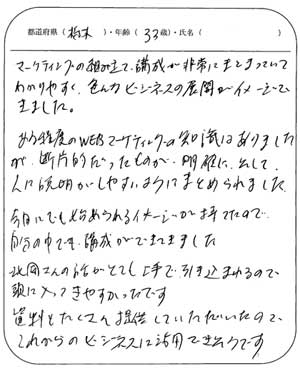 都道府県( 栃木 )・年齢( 33 歳)・氏名( )
マーケティングの組み立て、構成が非常にまとまっていて
わかりやすく、色んなビジネスの展開がイメージで
きました。
ある程度のWEBマーケティングの知識はありました
が、断片的だったものが、明確に、そして、
人に説明がしやすいようにまとめられました。
今日にでも始められるイメージが持てたので
自分の中でも構成ができてきました
北岡さんの話がとても上手で引き込まれるので
頭に入ってきやすかったです
資料もたくさん提供していただいたので、
これからのビジネスに活用できそうです